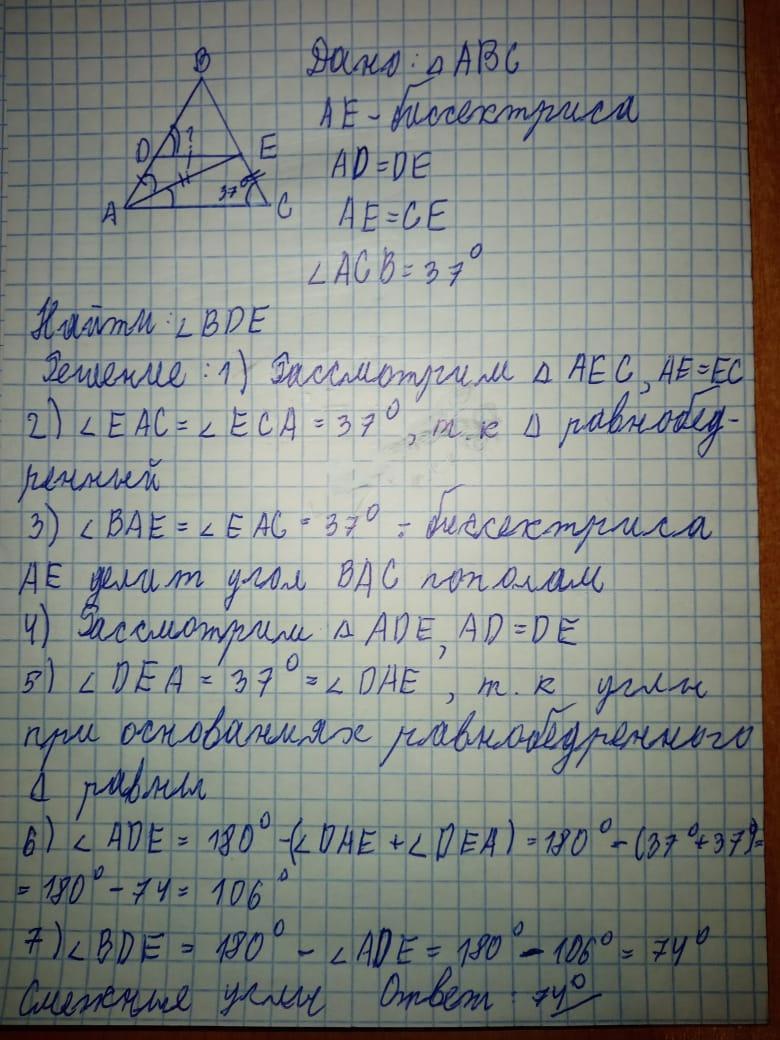 B
Дано: △ABC
AE - биссектриса
D ? E
AD = DE
37°
A C
AE = CE
∠ACB = 37°
Найти: ∠BDE
Решение: 1) Рассмотрим △ AEC, AE = EC
2) ∠EAC = ∠ECA = 37°, т.к △ равнобед-
ренный
3) ∠BAE = ∠EAC = 37° - биссектриса
AE делит угол BAC пополам
4) Рассмотрим △ ADE, AD = DE
5) ∠DEA = 37° = ∠DAE, т.к углы
при основаниях равнобедренного
△ равны
6) ∠ADE = 180° - (∠DAE + ∠DEA) = 180° - (37° + 37°) =
= 180° - 74 = 106°
7) ∠BDE = 180° - ∠ADE = 180° - 106° = 74°
Смежные углы Ответ: 74°